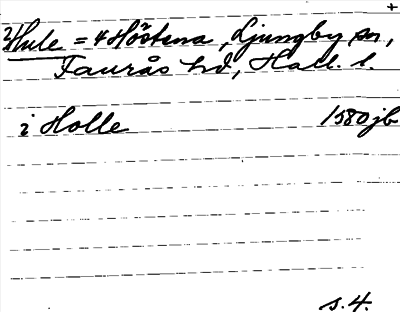 +
2Hule = 4 Höstena, Ljungby sn,
Faurås hd, Hall. l.
i Holle 1580 jb
s. 4.